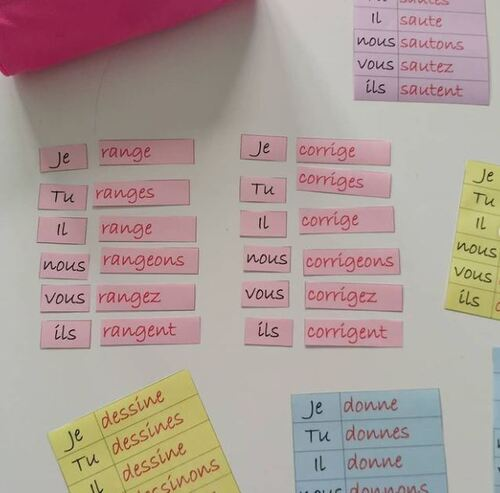 Il saute
nous sautons
vous sautez
ils sautent
Je range
Tu ranges
Il range
nous rangeons
vous rangez
ils rangent
Je corrige
Tu corriges
Il corrige
nous corrigeons
vous corrigez
ils corrigent
Je
Tu
Il
nous
vous
ils
Je dessine
Tu dessines
Il dessine
Je donne
Tu donnes
Il donne
nous donnons